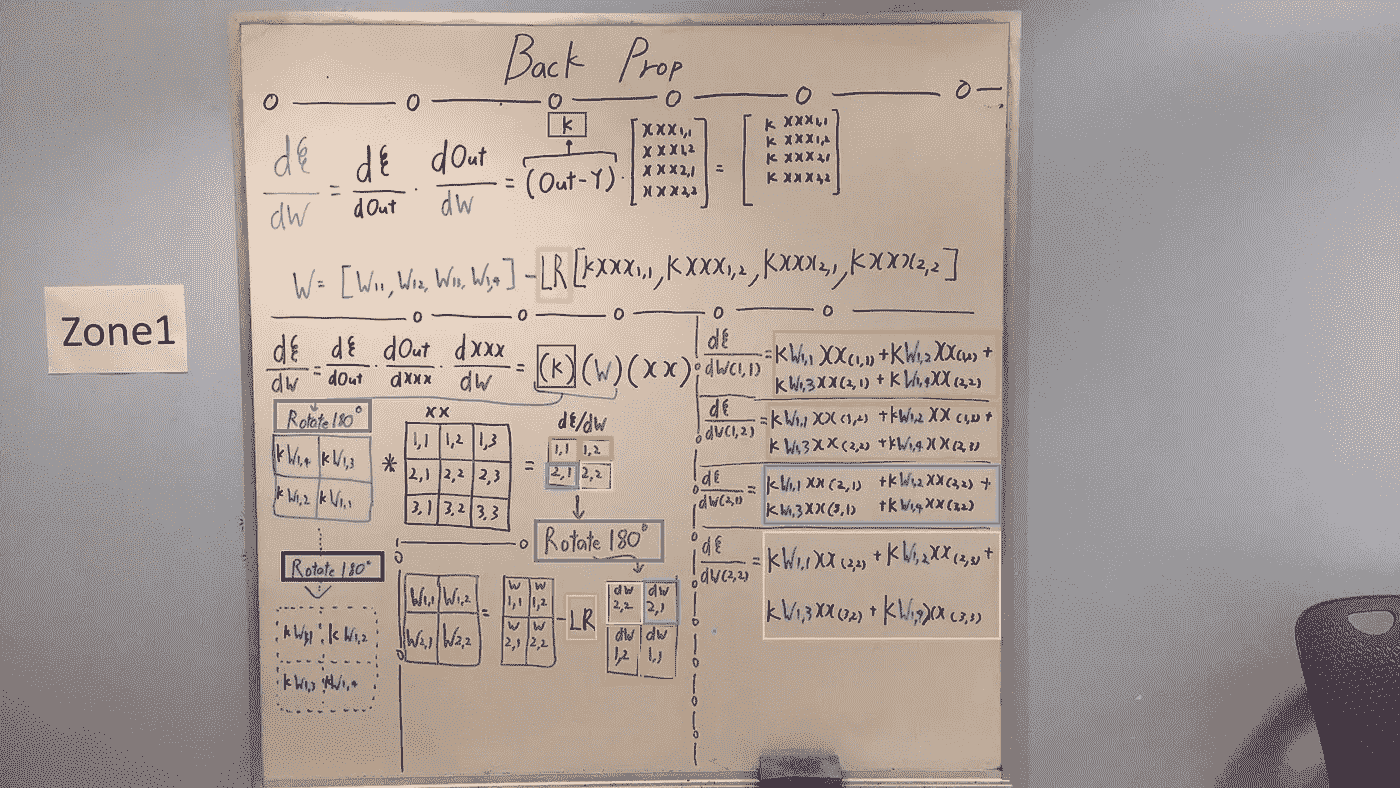 Back Prop
dξ/dW = dξ/dOut · dOut/dW = (Out-Y) · [XXX1,1 XXX1,2 XXX2,1 XXX2,2] = [K XXX1,1 K XXX1,2 K XXX2,1 K XXX2,2]
K
W = [W11, W12, W13, W1,4] - LR [KXXX1,1, KXXX1,2, KXXX2,1, KXXX2,2]
Zone1
dξ/dW = dξ/dOut · dOut/dXXX · dXXX/dW = (K)(W)(XX)
Rotate 180°
KW1,4 KW1,3
KW1,2 KW1,1
*
XX
1,1 1,2 1,3
2,1 2,2 2,3
3,1 3,2 3,3
=
dξ/dW
1,1 1,2
2,1 2,2
Rotate 180°
Rotate 180°
KW1,1 KW1,2
KW1,3 KW1,4
W1,1 W1,2
W2,1 W2,2
=
W1,1 W1,2
W2,1 W2,2
- LR
dW2,2 dW2,1
dW1,2 dW1,1
dξ/dW(1,1) = KW1,1 XX(1,1) + KW1,2 XX +
KW1,3 XX(2,1) + KW1,4 XX(2,2)
dξ/dW(1,2) = KW1,1 XX(1,2) + KW1,2 XX +
KW1,3 XX(2,2) + KW1,4 XX
dξ/dW(2,1) = KW1,1 XX(2,1) + KW1,2 XX(2,2) +
KW1,3 XX(3,1) + KW1,4 XX(3,2)
dξ/dW(2,2) = KW1,1 XX(2,2) + KW1,2 XX(2,3) +
KW1,3 XX(3,2) + KW1,4 XX(3,3)